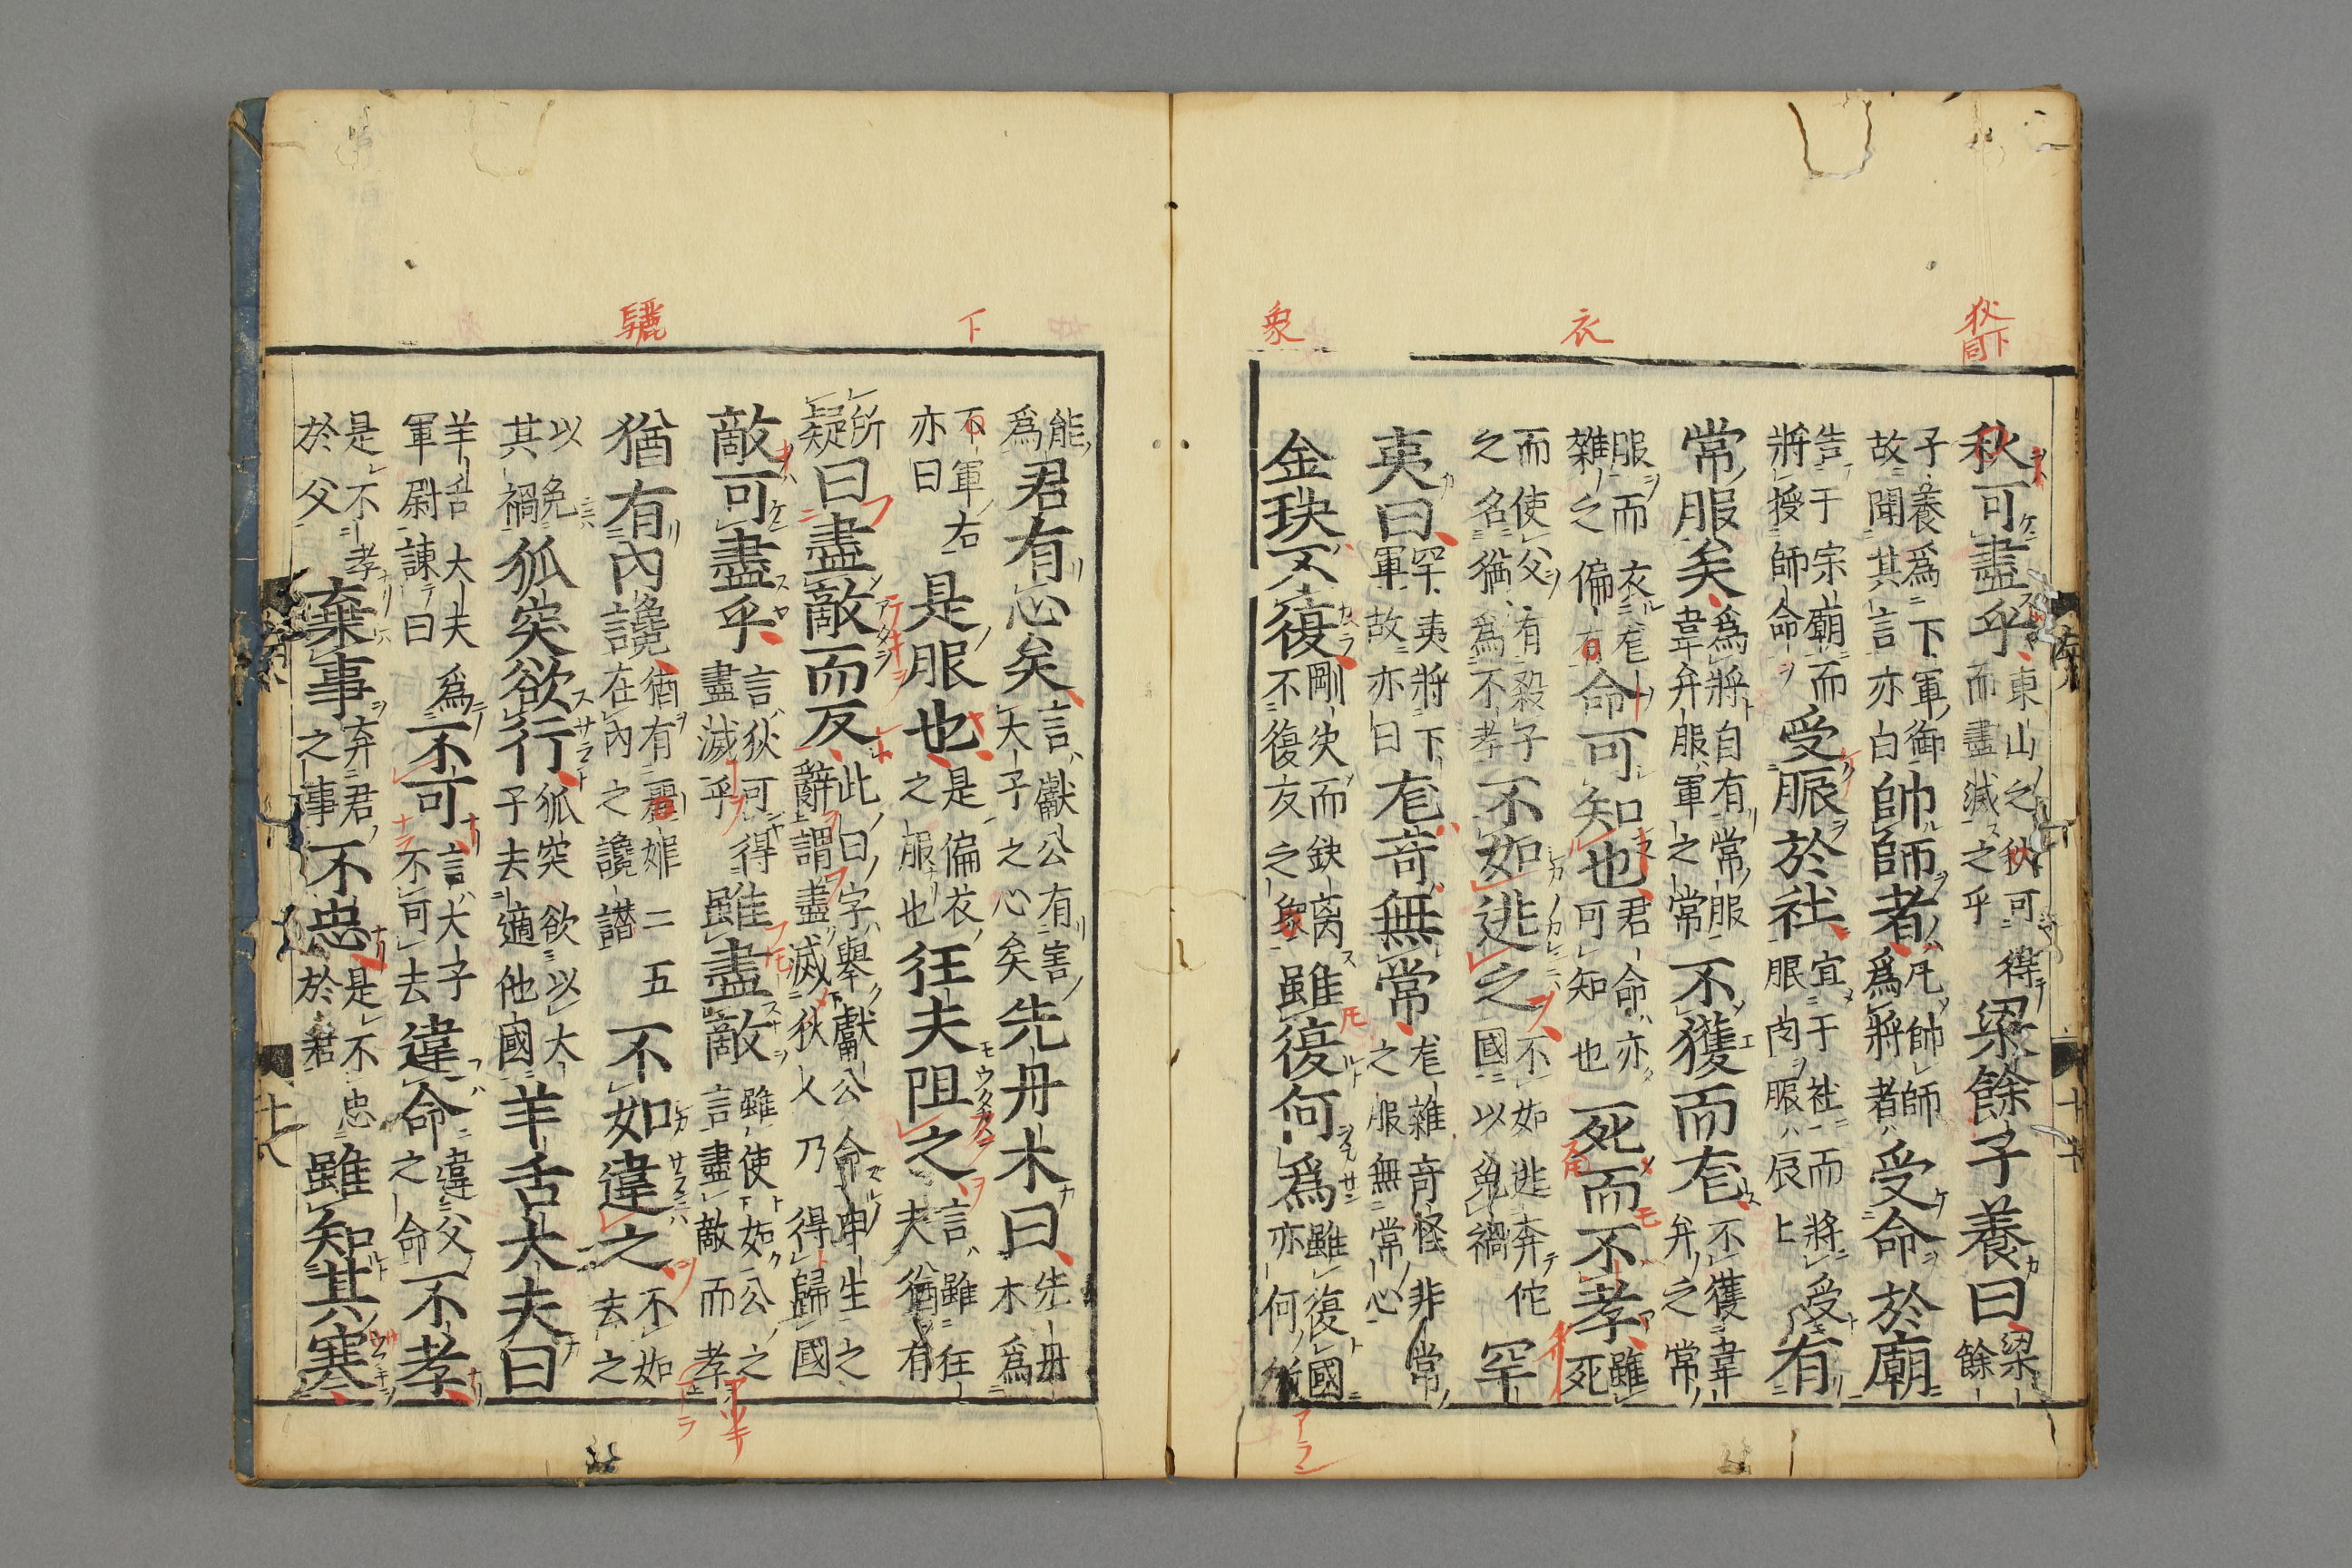 狄下同
衣
象
秋可盡乎東山之狄可得而盡滅之乎梁餘子養曰梁餘
子養爲下軍御故聞其言亦白帥師者凡帥師爲將者受命於廟
告于宗廟而將授師命受脤於社宜于社而將受脤肉脤辰上有
常服矣爲將自有常服韋弁服軍之常不獲而尨不獲韋弁之常
服而衣尨雜之偏命可知也君命亦可知也死而不孝雖死
而使父有殺子之名猶爲不孝不如逃之不如逃奔佗國以免禍罕
夷曰罕夷將下軍故亦曰尨奇無常尨雜奇怪非常之服無常心
金玦不復剛決而鈌离不復友之象雖復何爲雖復國亦何所
十七
下
驪
能爲君有心矣言獻公有害大子之心矣先丹木曰先丹木爲
不軍右亦曰是服也是偏衣之服也狂夫阻之言雖狂夫猶有
所疑曰盡敵而反此曰字舉獻公命申生之辭謂盡滅狄人乃得歸國
敵可盡乎言狄可得盡滅乎雖盡敵雖使如公之言盡敵而孝
猶有內讒猶有麗姬二五在內之讒譖不如違之不如去之
以免其禍狐突欲行狐突欲以大子去適他國羊舌大夫曰
羊舌大夫爲軍尉諫曰不可言大子不可去違命違父之命不孝
是不孝於父棄事弃君之事不忠是不忠於君雖知其寒
十八